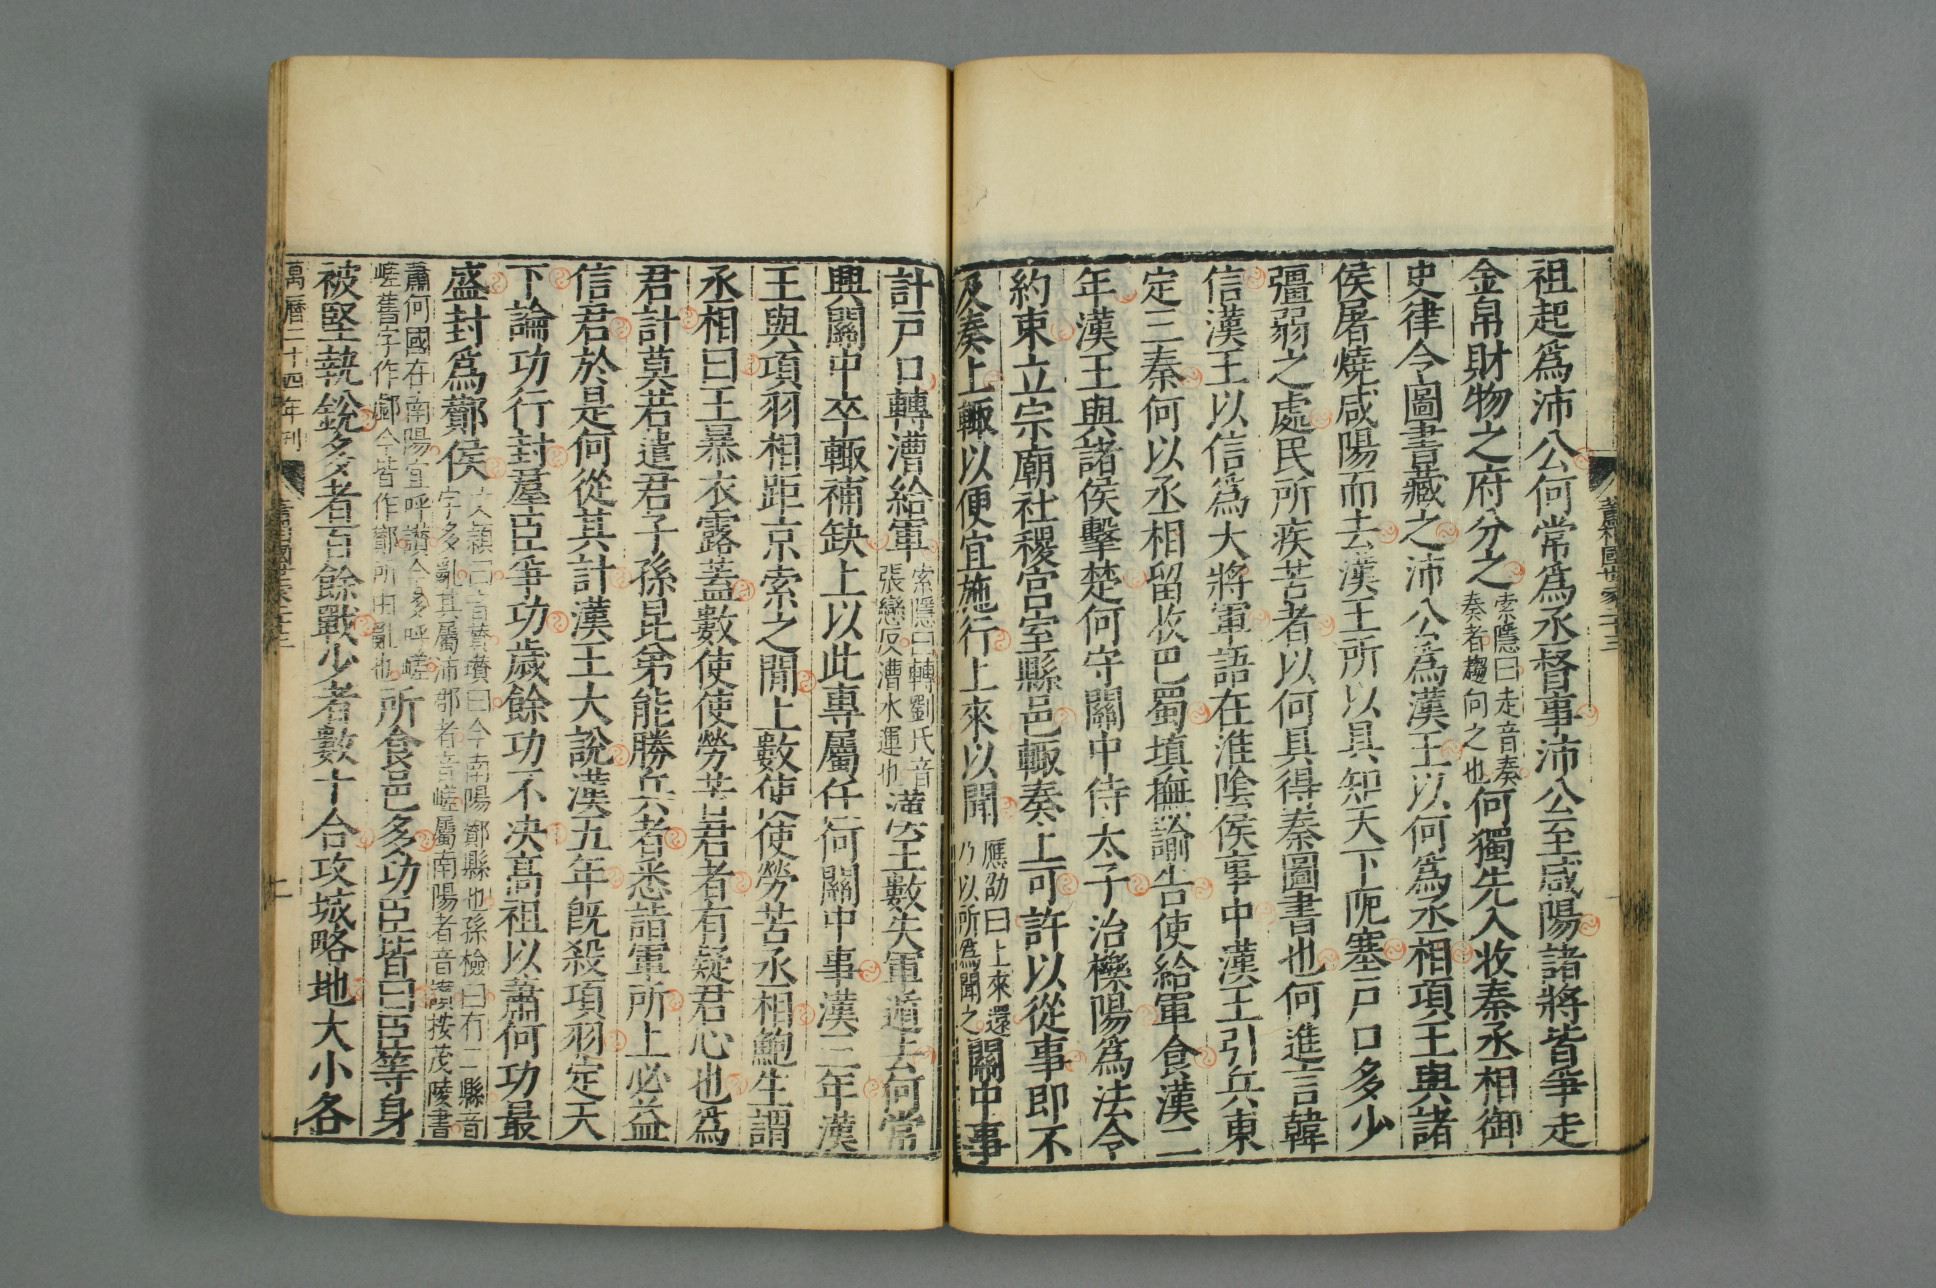 蕭相國世家二十三
祖起爲沛公何常爲丞督事沛公至咸陽諸將皆爭走
金帛財物之府分之索隱曰走音奏奏者趨向之也何獨先入收秦丞相御
史律令圖書藏之沛公爲漢王以何爲丞相項王與諸
侯屠燒咸陽而去漢王所以具知天下阨塞戶口多少
彊弱之處民所疾苦者以何具得秦圖書也何進言韓
信漢王以信爲大將軍語在淮陰侯事中漢王引兵東
定三秦何以丞相留收巴蜀塡撫諭告使給軍食漢二
年漢王與諸侯擊楚何守關中侍太子治櫟陽爲法令
約束立宗廟社稷宮室縣邑輒奏上可許以從事即不
及奏上輒以便宜施行上來以聞應劭曰上來還乃以所爲聞之關中事
計戶口轉漕給軍索隱曰轉劉氏音張戀反漕水運也漢王數失軍遁去何常
興關中卒輒補缺上以此專屬任何關中事漢三年漢
王與項羽相距京索之閒上數使使勞苦丞相鮑生謂
丞相曰王暴衣露蓋數使使勞苦君者有疑君心也爲
君計莫若遣君子孫昆弟能勝兵者悉詣軍所上必益
信君於是何從其計漢王大說漢五年旣殺項羽定天
下論功行封羣臣爭功歲餘功不決高祖以蕭何功最
盛封爲酇侯文穎曰音贊瓚曰今南陽酇縣也孫檢曰有二縣音字多亂其屬沛郡者音嵯屬南陽者音讚按茂陵書
蕭何國在南陽宜呼讚今多呼嵯嵯舊字作䣜今皆作酇所由亂也所食邑多功臣皆曰臣等身
被堅執銳多者百餘戰少者數十合攻城略地大小各
萬曆二十四年刊
二